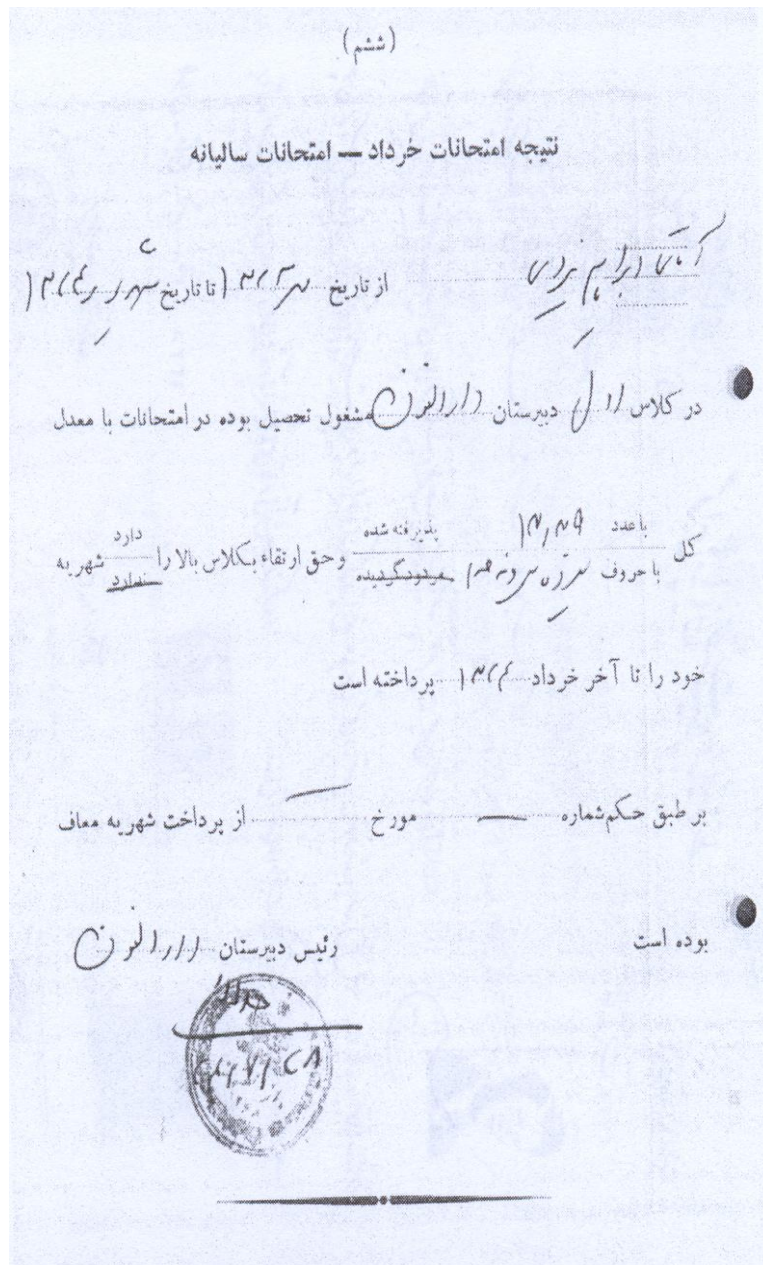 (ششم)
نتیجه امتحانات خرداد — امتحانات سالیانه
آقای ابراهیم یزدی از تاریخ مهر ۱۳۲۳ تا تاریخ شهریور ۱۳۲۴
در کلاس اول دبیرستان دارالفنون مشغول تحصیل بوده در امتحانات با معدل
کل باعدد ۱۳٫۲۹ پذیرفته شده وحق ارتقاء بکلاس بالا را دارد
با حروف سیزده مردودگردیده ندارد شهریه
خود را تا آخر خرداد ۱۳۲۴ پرداخته است
بر طبق حکم شماره — مورخ — از پرداخت شهریه معاف
بوده است رئیس دبیرستان دارالفنون